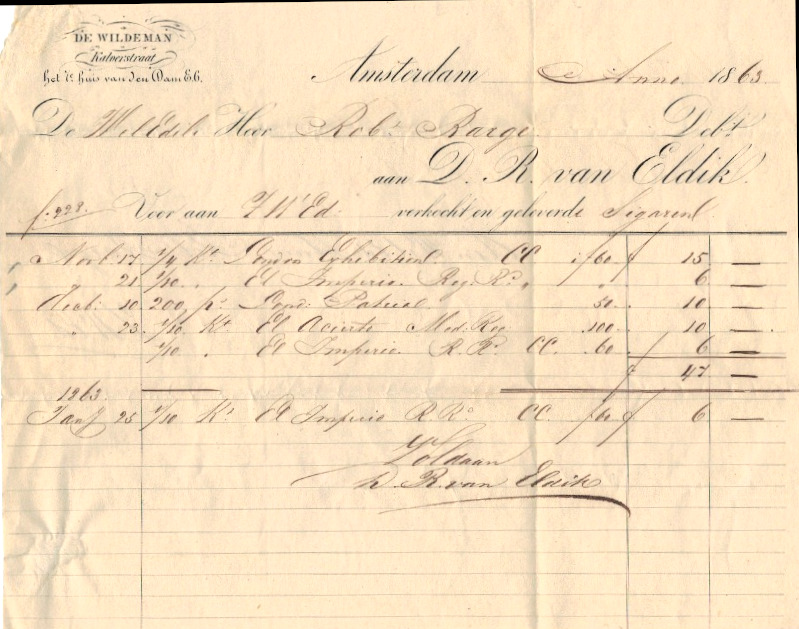 DE WILDEMAN
Kalverstraat
het 7e huis van den Dam E6.
Amsterdam Anno 1863.
De WelEdele Heer Robt Barge Debt
aan D. R. van Eldik.
f. 228. Voor aan ZWEd. verkocht en geleverde Sigaren
Novb 17 1/4 Kt London Exhibition CC f 60 f 15 —
" 21 1/10 " El Imperio Reg. Ro " " 6 —
Decb 10 200 ps Lond. 50 10 —
" 23 1/10 Kt El Acierto Med. Reg 100 10 —
1/10 " El Imperio R. Ro CC. 60 6 —
f 47 —
1863
Jany 25 1/10 Kt El Imperio R Ro CC f 60 f 6 —
Voldaan
D. R. van Eldik